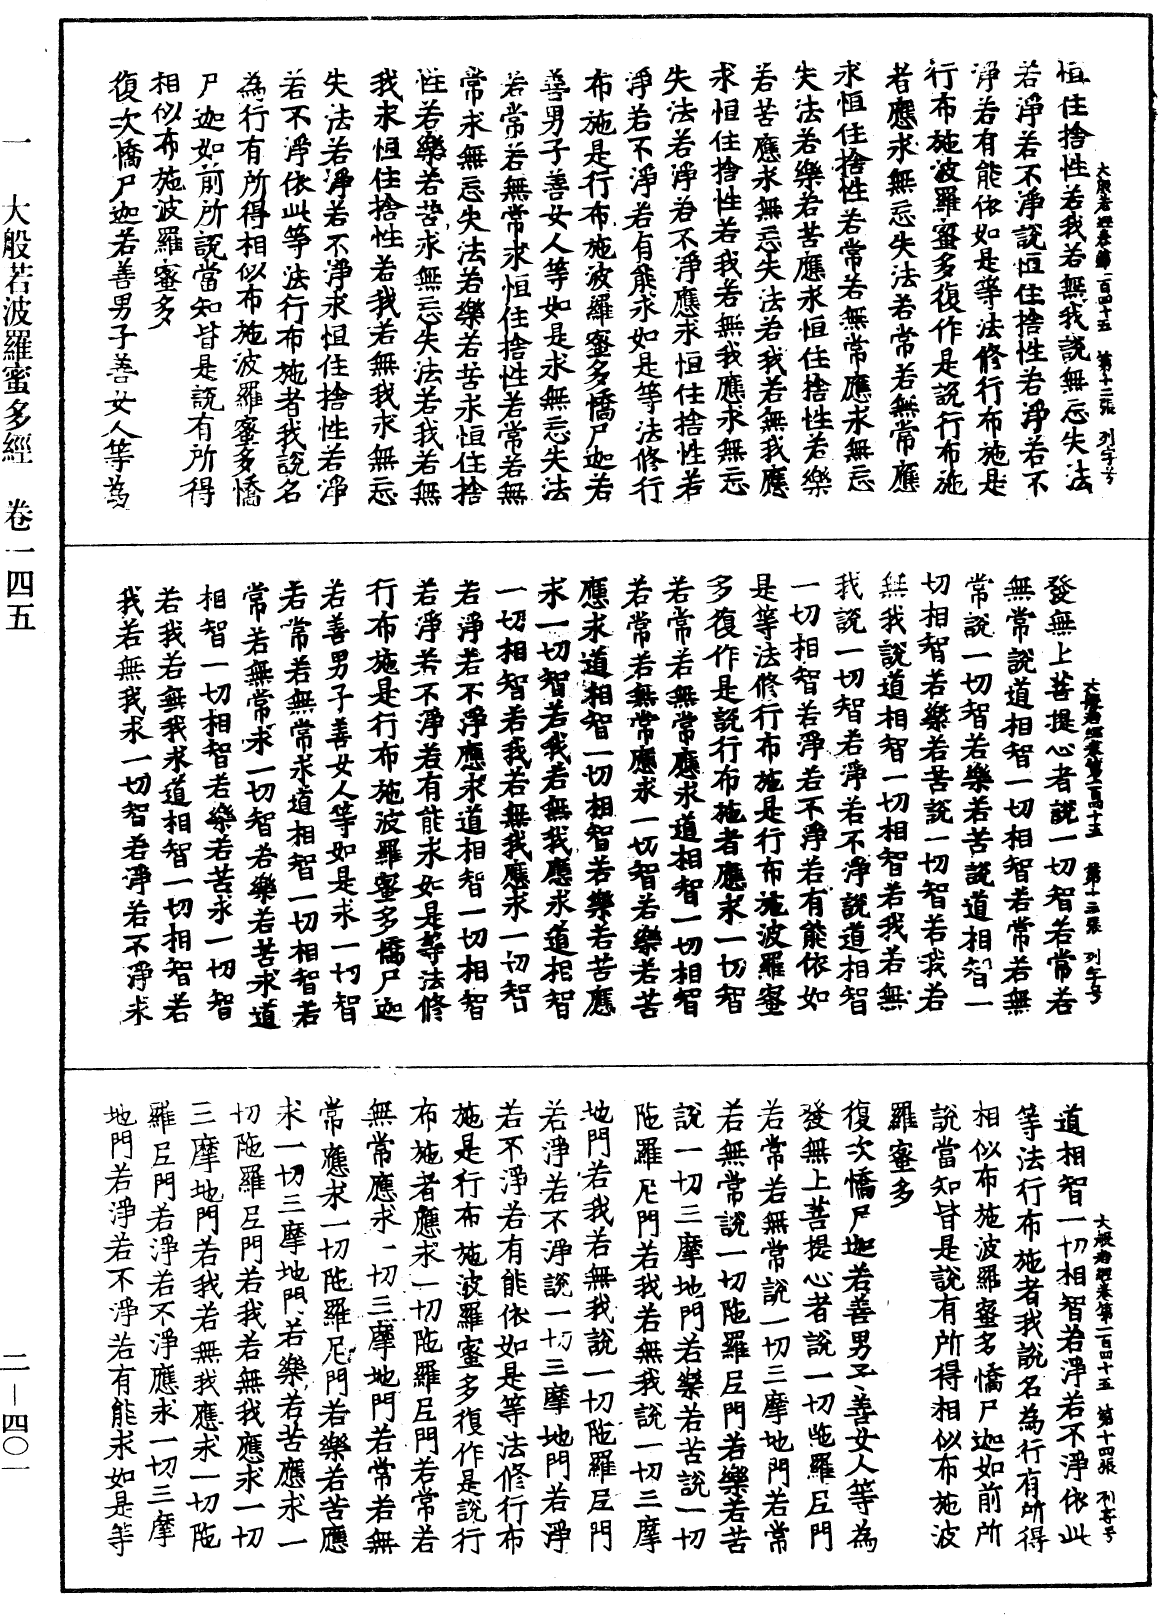 恒住捨性若我若無我說無忘失法
若淨若不淨說恒住捨性若淨若不
淨若有能依如是等法修行布施是
行布施波羅蜜多復作是說行布施
者應求無忘失法若常若無常應
求恒住捨性若常若無常應求無忘
失法若樂若苦應求恒住捨性若樂
若苦應求無忘失法若我若無我應
求恒住捨性若我若無我應求無忘
失法若淨若不淨應求恒住捨性若
淨若不淨若有能求如是等法修行
布施是行布施波羅蜜多憍尸迦若
善男子善女人等如是求無忘失法
若常若無常求恒住捨性若常若無
常求無忘失法若樂若苦求恒住捨
性若樂若苦求無忘失法若我若無
我求恒住捨性若我若無我求無忘
失法若淨若不淨求恒住捨性若淨
若不淨依此等法行布施者我說名
為行有所得相似布施波羅蜜多憍
尸迦如前所說當知皆是說有所得
相似布施波羅蜜多
復次憍尸迦若善男子善女人等為
大般若經卷第一百四十五　第十二張　列字号
發無上菩提心者說一切智若常若
無常說道相智一切相智若常若無
常說一切智若樂若苦說道相智一
切相智若樂若苦說一切智若我若
無我說道相智一切相智若我若無
我說一切智若淨若不淨說道相智
一切相智若淨若不淨若有能依如
是等法修行布施是行布施波羅蜜
多復作是說行布施者應求一切智
若常若無常應求道相智一切相智
若常若無常應求一切智若樂若苦
應求道相智一切相智若樂若苦應
求一切智若我若無我應求道相智
一切相智若我若無我應求一切智
若淨若不淨應求道相智一切相智
若淨若不淨若有能求如是等法修
行布施是行布施波羅蜜多憍尸迦
若善男子善女人等如是求一切智
若常若無常求道相智一切相智若
常若無常求一切智若樂若苦求道
相智一切相智若樂若苦求一切智
若我若無我求道相智一切相智若
我若無我求一切智若淨若不淨求
大般若經卷第一百四十五　第十三張　列字号
道相智一切相智若淨若不淨依此
等法行布施者我說名為行有所得
相似布施波羅蜜多憍尸迦如前所
說當知皆是說有所得相似布施波
羅蜜多
復次憍尸迦若善男子善女人等為
發無上菩提心者說一切陁羅尼門
若常若無常說一切三摩地門若常
若無常說一切陁羅尼門若樂若苦
說一切三摩地門若樂若苦說一切
陁羅尼門若我若無我說一切三摩
地門若我若無我說一切陁羅尼門
若淨若不淨說一切三摩地門若淨
若不淨若有能依如是等法修行布
施是行布施波羅蜜多復作是說行
布施者應求一切陁羅尼門若常若
無常應求一切三摩地門若常若無
常應求一切陁羅尼門若樂若苦應
求一切三摩地門若樂若苦應求一
切陁羅尼門若我若無我應求一切
三摩地門若我若無我應求一切陁
羅尼門若淨若不淨應求一切三摩
地門若淨若不淨若有能求如是等
大般若經卷第一百四十五　第十四張　列字号
一　大般若波羅蜜多經　卷一四五
二—四〇一